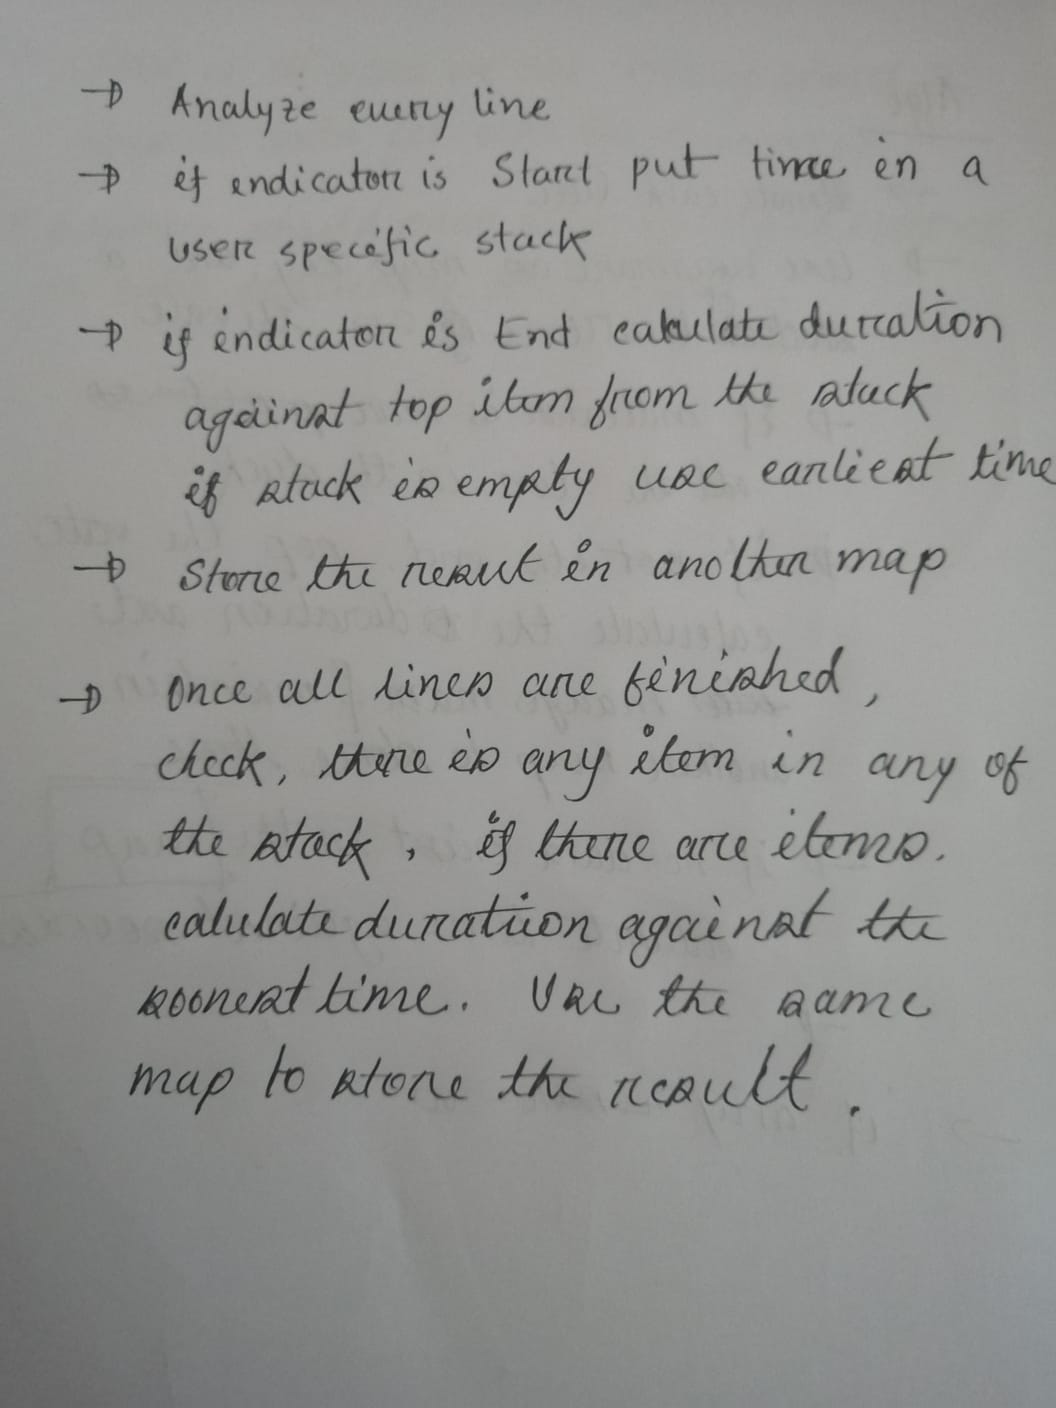 → Analyze every line
→ if indicator is Start put time in a
user specific stack
→ if indicator is End calulate duration
against top item from the stack
if stack is empty use earliest time
→ Store the result in another map
→ Once all lines are finished,
check, there is any item in any of
the stack, if there are items.
calulate duration against the
soonest time. Use the same
map to store the result.